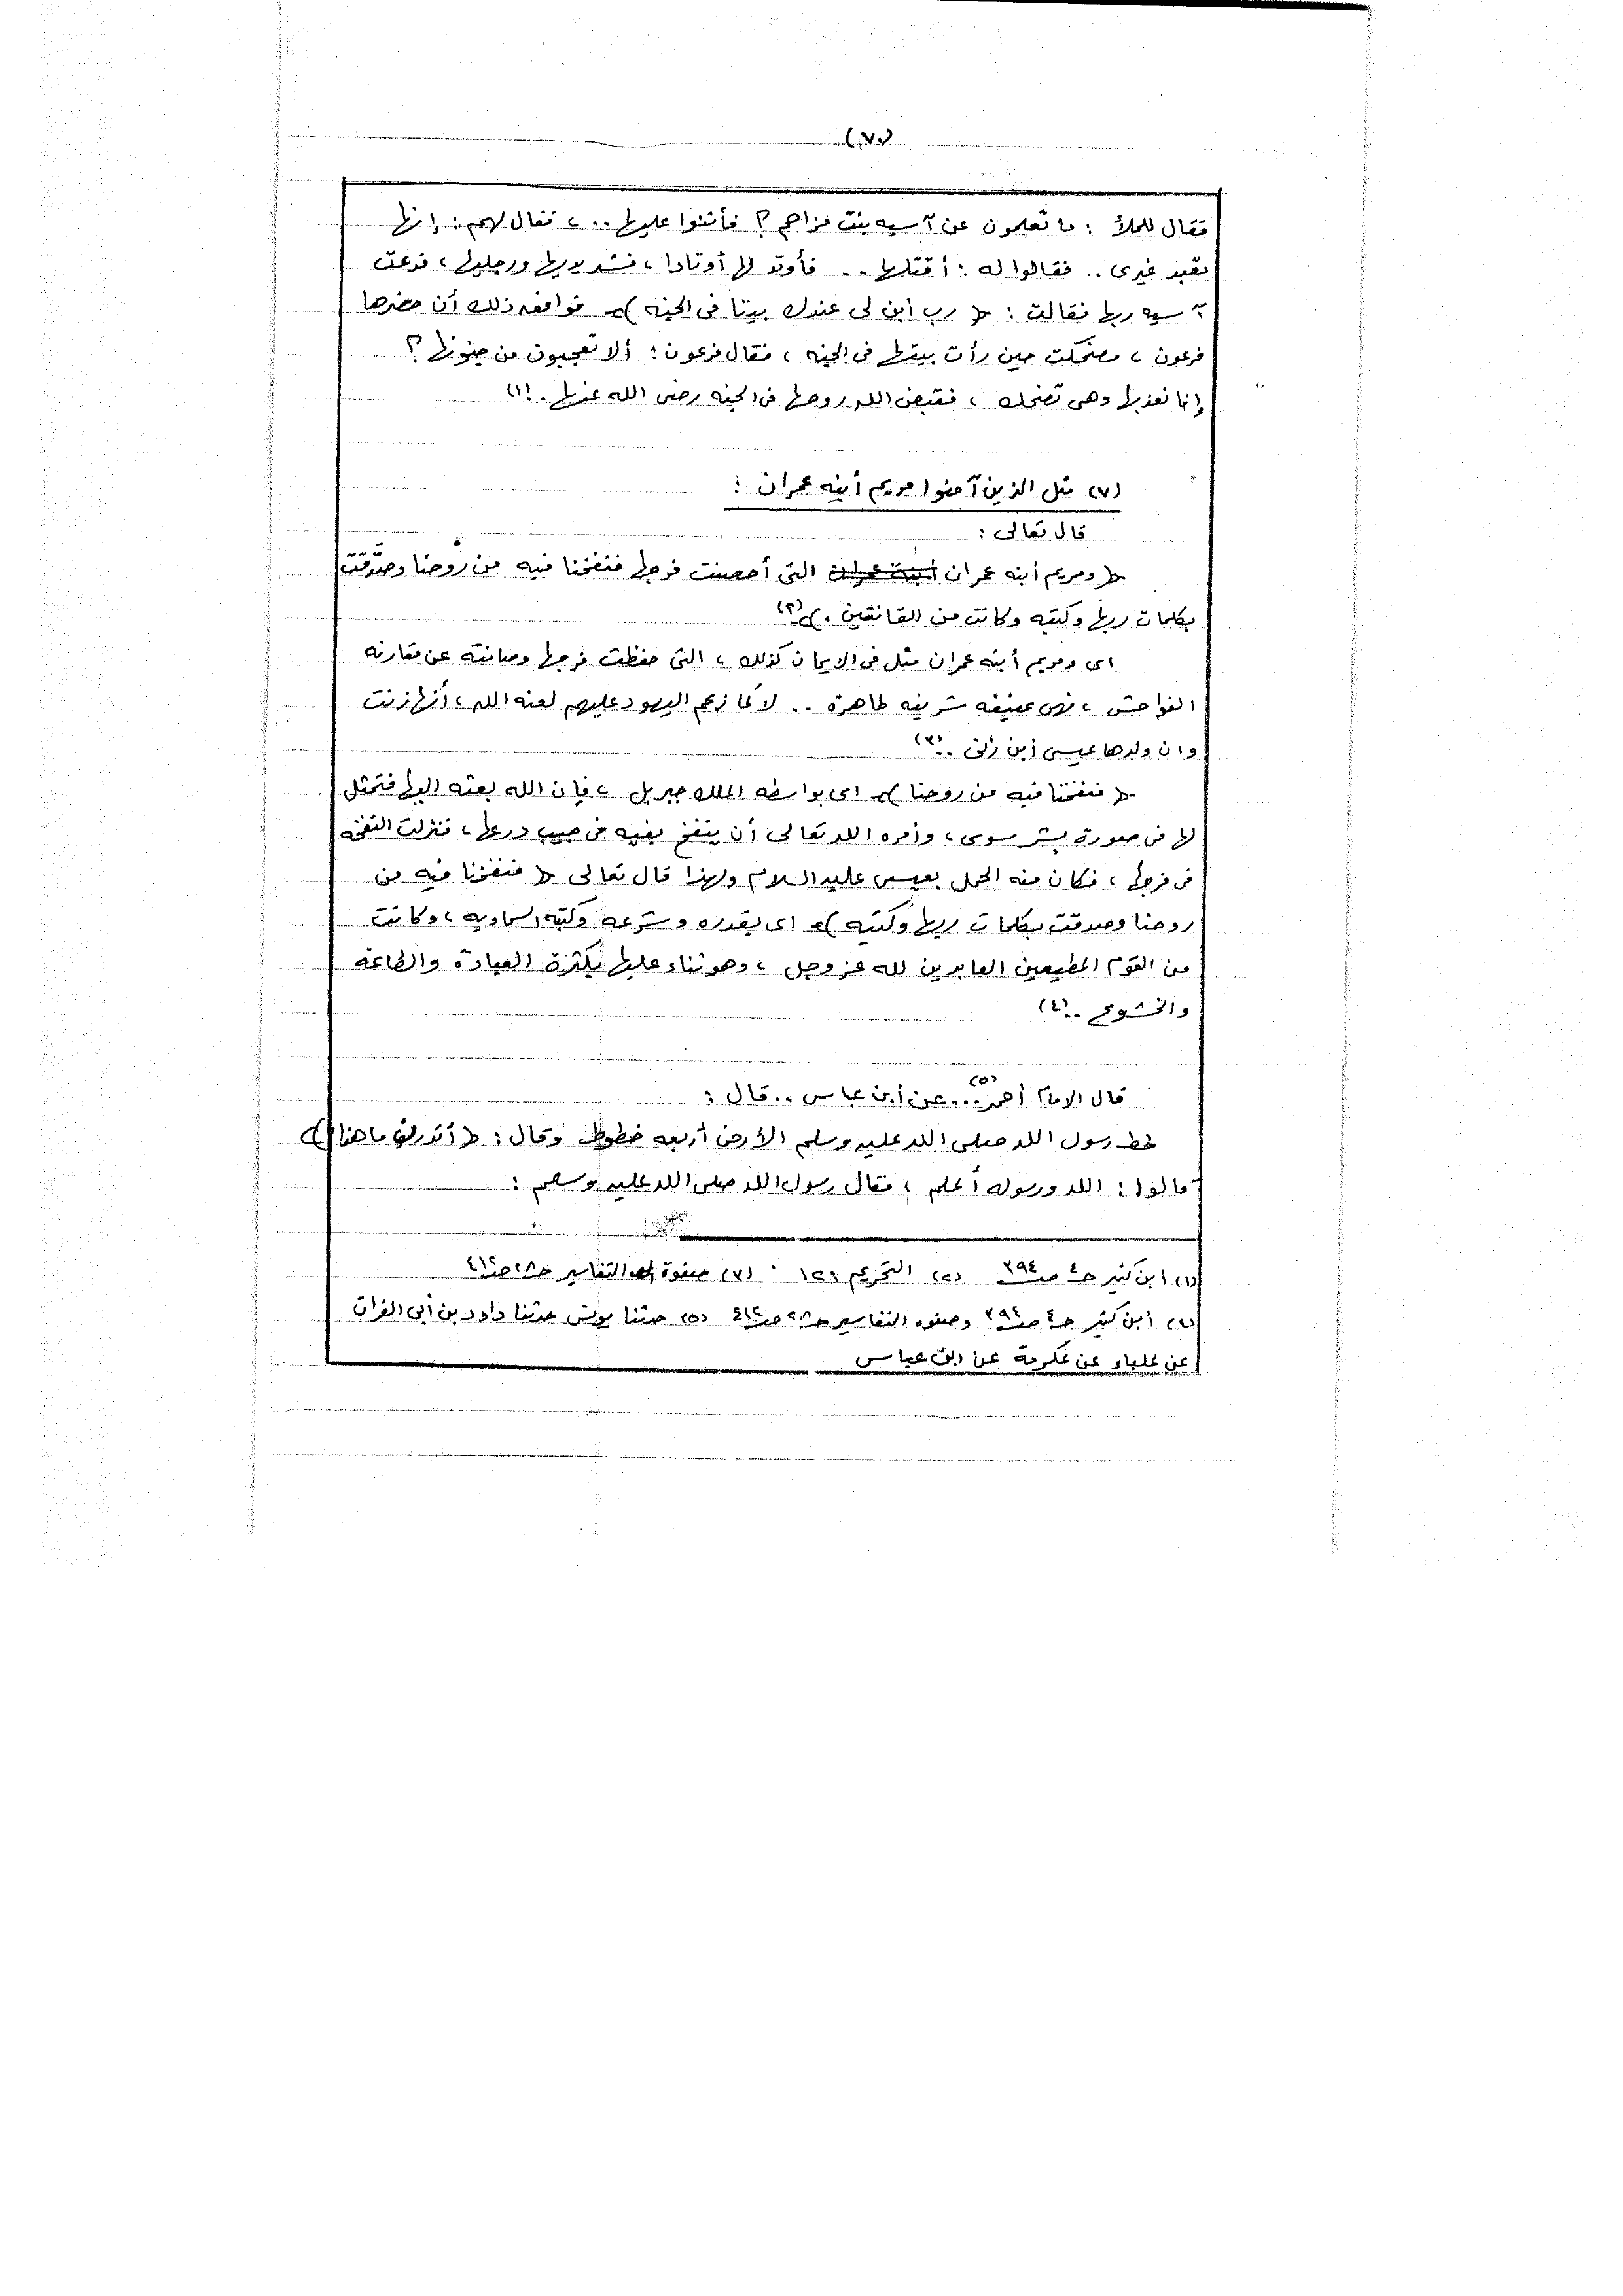 (٧٠)
فقال للملأ : ما تعلمون عن آسيه بنت مزاحم ؟ فأثنوا عليها .. ، فقال لهم : إنها
تعبد غيرى .. فقالوا له : أقتلها .. فأوتد لها أوتادا ، فشد يديها ورجليها ، فدعت
آسيه ربها فقالت : ﴿ رب أبن لى عندك بيتا فى الجنه ﴾ فوافق ذلك أن حضرها
فرعون ، فضحكت حين رأت بيتها فى الجنه ، فقال فرعون : ألا تعجبون من جنونها ؟
إنا نعذبها وهى تضحك ، فقبض الله روحها فى الجنه رضى الله عنها .. (١)
(٧) مثل الذين آمنوا مريم أبنه عمران :
قال تعالى :
﴿ ومريم أبنه عمران التى أحصنت فرجها فنفخنا فيه من رُّوحنا وصدَّقت
بكلمات ربها وكتبه وكانت من القانتين . ﴾ (٢)
اى ومريم أبنه عمران مثل فى الايمان كذلك ، التى حفظت فرجها وصانته عن مقارنه
الفواحش ، فهى عفيفه شريفه طاهرة .. لا كما زعم اليهود عليهم لعنه الله ، أنها زنت
وان ولدها عيسى أبن زنى .. (٣)
﴿ فنفخنا فيه من روحنا ﴾ اى بواسطه الملك جبريل ، فإن الله بعثه اليها فتمثل
لها فى صورة بشر سوى ، وأمره الله تعالى أن ينفخ بفيه فى جيب درعها ، فنزلت النفخه
فى فرجها ، فكان منه الحمل بعيسى عليه السلام ولهذا قال تعالى ﴿ فنفخنا فيه من
روحنا وصدقت بكلمات ربها وكتبه ﴾ اى بقدره وشرعه وكتبه السماويه ، وكانت
من القوم المطيعين العابدين لله عز وجل ، وهو ثناء عليها بكثرة العبادة والطاعه
والخشوع .. (٤)
قال الامام أحمد (٥) ... عن أبن عباس .. قال :
خط رسول الله صلى الله عليه وسلم الأرض أربعه خطوط وقال : ﴿ أتدرون ما هذا ﴾
قالوا : الله ورسوله أعلم ، فقال رسول الله صلى الله عليه وسلم :
(١) أبن كثير جـ٤ صـ٣٩٤ (٢) التحريم : ١٢ . (٣) صفوة التفاسير جـ٢٨ صـ٤١٢
(٤) أبن كثير جـ٤ صـ٣٩٤ وصفوه التفاسير جـ٢٨ صـ٤١٢ (٥) حدثنا يونس حدثنا داود بن أبى الفرات
عن علباء عن عكرمة عن ابن عباس